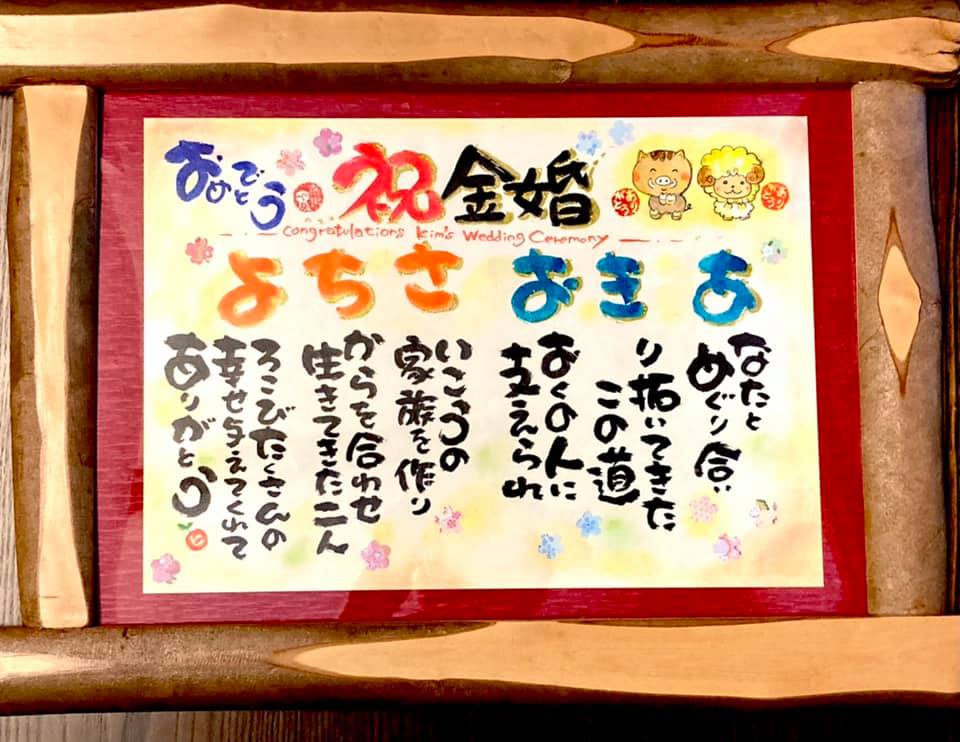 おめでとう
祝金婚
Congratulations Kim's Wedding Ceremony
あきお
さちよ
なたと
めぐり合い
り拓いてきた
この道
おくの人に
支えられ
いこうの
家族を作り
からを合わせ
生きてきた二人
ろこびたくさんの
幸せ与えてくれて
ありがとう